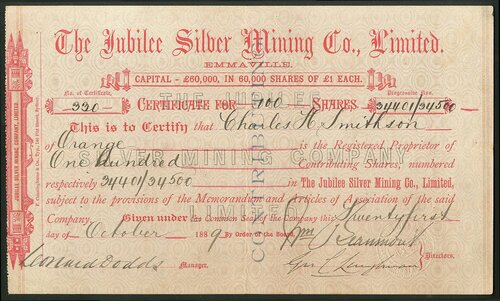 The Jubilee Silver Mining Co., Limited.
EMMAVILLE.
CAPITAL - £60,000, IN 60,000 SHARES OF £1 EACH.
No. of Certificate, Progressive Nos.
320 CERTIFICATE FOR 100 SHARES 34401/34500
THE JUBILEE
This is to Certify that Charles H. Smithson of
Orange is the Registered Proprietor of
One Hundred Contributing Shares, numbered
SILVER MINING COMPANY
respectively 34401/34500 in The Jubilee Silver Mining Co., Limited,
subject to the provisions of the Memorandum and Articles of Association of the said
LIMITED
Company. Given under the Common Seal of the Company this Twenty first
day of October 1889 By Order of the Board,
Wm Beaumont
Leonard Dodds Manager.
Directors.
CONTRIBUTING
JUBILEE SILVER MINING COMPANY, LIMITED.